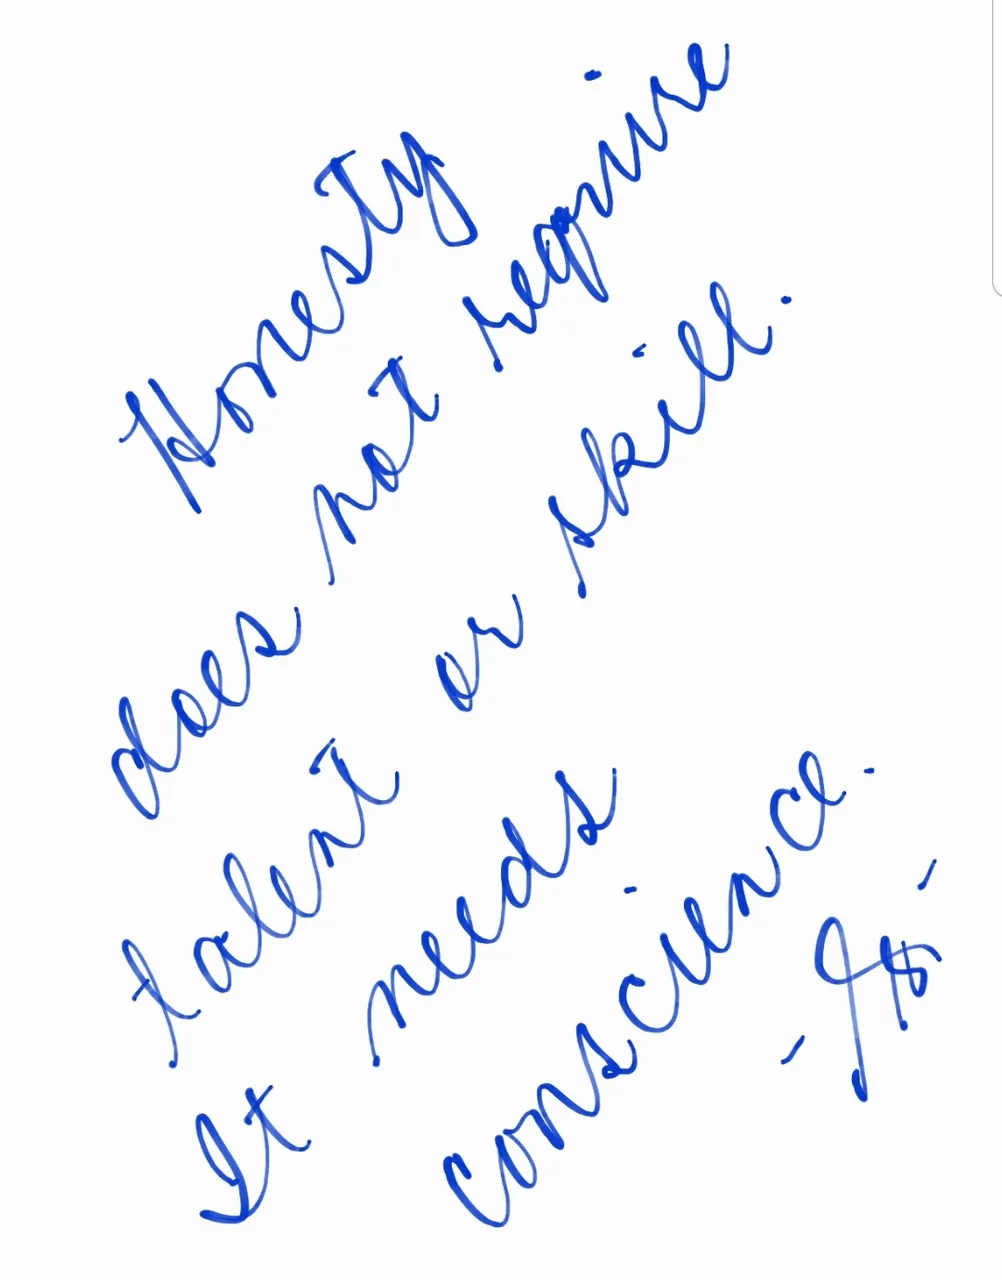 Honesty
does not require
talent or skill.
It needs
conscience.